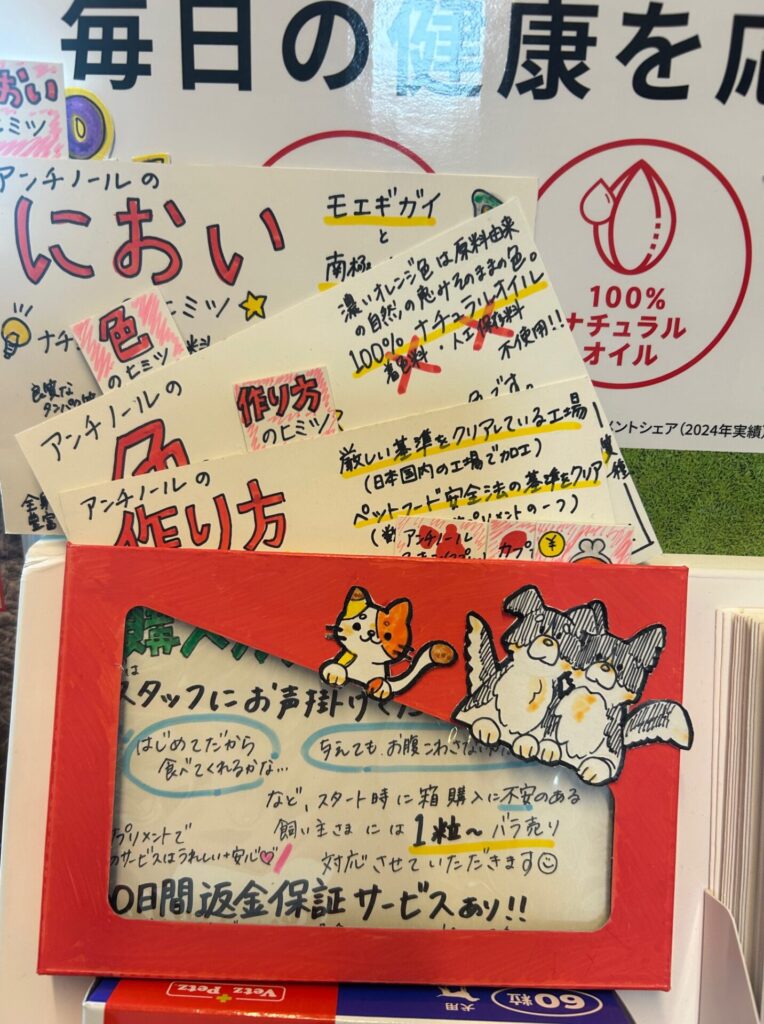 毎日の健康を
100%
ナチュラル
オイル
メントシェア(2024年実績)
におい
ヒミツ
アンチノールの
におい
モエギガイ
と
南極
ヒミツ
ナチュ
良質な
色
のヒミツ
アンチノールの
色
濃いオレンジ色は原料由来
の自然の恵みそのままの色。
100%ナチュラルオイル
着色料・人工保存料
不使用!!
です。
作り方
のヒミツ
アンチノールの
作り方
厳しい基準をクリアしている工場
(日本国内の工場で加工)
ペットフード安全法の基準をクリア
プリメントの一つ)
アンチノール
カプ
¥
購入
スタッフにお声掛けくだ
はじめてだから
食べてくれるかな…
与えても、お腹こわさない
など、スタート時に箱購入に不安のある
飼い主さまには1粒〜バラ売り
対応させていただきます
プリメントで
のサービスはうれしい+安心
0日間返金保証サービスあり!!
Vetz Petz
犬用
60粒